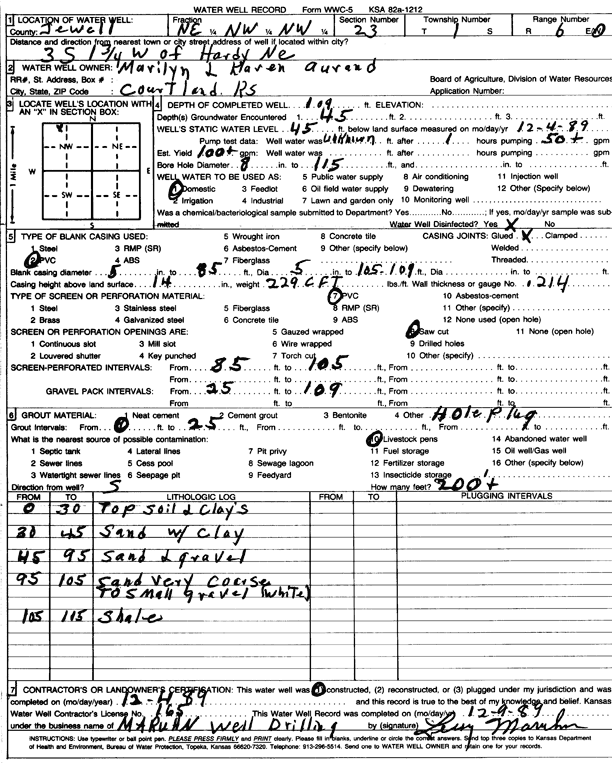 WATER WELL RECORD Form WWC-5 KSA 82a-1212
1 LOCATION OF WATER WELL: Fraction Section Number Township Number Range Number
County: Jewell NE ¼ NW ¼ NW ¼ 23 T 1 S R 6 E/W
Distance and direction from nearest town or city street address of well if located within city?
3 S 1 3/4 W of Hardy Ne
2 WATER WELL OWNER: Marilyn & Haren Aurand
RR#, St. Address, Box # : Board of Agriculture, Division of Water Resources
City, State, ZIP Code : Courtland, Ks Application Number:
3 LOCATE WELL'S LOCATION WITH AN "X" IN SECTION BOX:
N
NW NE
W E
SW SE
S
1 Mile
4 DEPTH OF COMPLETED WELL 109 ft. ELEVATION:
Depth(s) Groundwater Encountered 1. 45 ft. 2. ft. 3. ft.
WELL'S STATIC WATER LEVEL 45 ft. below land surface measured on mo/day/yr 12-4-89
Pump test data: Well water was unknown ft. after 1 hours pumping 50+ gpm
Est. Yield 100+ gpm: Well water was ft. after hours pumping gpm
Bore Hole Diameter 8 in. to 115 ft., and in. to ft.
WELL WATER TO BE USED AS: 5 Public water supply 8 Air conditioning 11 Injection well
1 Domestic 3 Feedlot 6 Oil field water supply 9 Dewatering 12 Other (Specify below)
2 Irrigation 4 Industrial 7 Lawn and garden only 10 Monitoring well
Was a chemical/bacteriological sample submitted to Department? Yes No ; If yes, mo/day/yr sample was submitted
Water Well Disinfected? Yes X No
5 TYPE OF BLANK CASING USED: 5 Wrought iron 8 Concrete tile CASING JOINTS: Glued X Clamped
1 Steel 3 RMP (SR) 6 Asbestos-Cement 9 Other (specify below) Welded
2 PVC 4 ABS 7 Fiberglass Threaded
Blank casing diameter 5 in. to 85 ft., Dia 5 in. to 105-109 ft., Dia in. to ft.
Casing height above land surface 14 in., weight 229 CFT lbs./ft. Wall thickness or gauge No. .214
TYPE OF SCREEN OR PERFORATION MATERIAL: 7 PVC 10 Asbestos-cement
1 Steel 3 Stainless steel 5 Fiberglass 8 RMP (SR) 11 Other (specify)
2 Brass 4 Galvanized steel 6 Concrete tile 9 ABS 12 None used (open hole)
SCREEN OR PERFORATION OPENINGS ARE: 5 Gauzed wrapped 8 Saw cut 11 None (open hole)
1 Continuous slot 3 Mill slot 6 Wire wrapped 9 Drilled holes
2 Louvered shutter 4 Key punched 7 Torch cut 10 Other (specify)
SCREEN-PERFORATED INTERVALS: From 85 ft. to 105 ft., From ft. to ft.
From ft. to ft., From ft. to ft.
GRAVEL PACK INTERVALS: From 25 ft. to 109 ft., From ft. to ft.
From ft. to ft., From ft. to ft.
6 GROUT MATERIAL: 1 Neat cement 2 Cement grout 3 Bentonite 4 Other Hole Plug
Grout Intervals: From 0 ft. to 25 ft., From ft. to ft., From ft. to ft.
What is the nearest source of possible contamination: 10 Livestock pens 14 Abandoned water well
1 Septic tank 4 Lateral lines 7 Pit privy 11 Fuel storage 15 Oil well/Gas well
2 Sewer lines 5 Cess pool 8 Sewage lagoon 12 Fertilizer storage 16 Other (specify below)
3 Watertight sewer lines 6 Seepage pit 9 Feedyard 13 Insecticide storage
Direction from well? S How many feet? 200+'
FROM TO LITHOLOGIC LOG FROM TO PLUGGING INTERVALS
0 30 Top Soil & Clay's
30 45 Sand w/ Clay
45 95 Sand & gravel
95 105 Sand Very Coarse
TO Small gravel (white)
105 115 Shale
7 CONTRACTOR'S OR LANDOWNER'S CERTIFICATION: This water well was (1) constructed, (2) reconstructed, or (3) plugged under my jurisdiction and was
completed on (mo/day/year) 12-4-89 and this record is true to the best of my knowledge and belief. Kansas
Water Well Contractor's License No. 165 This Water Well Record was completed on (mo/day/yr) 12-9-89
under the business name of MARUHN Well Drilling by (signature) Leroy Maruhn
INSTRUCTIONS: Use typewriter or ball point pen. PLEASE PRESS FIRMLY and PRINT clearly. Please fill in blanks, underline or circle the correct answers. Send top three copies to Kansas Department
of Health and Environment, Bureau of Water Protection, Topeka, Kansas 66620-7320. Telephone: 913-296-5514. Send one to WATER WELL OWNER and retain one for your records.